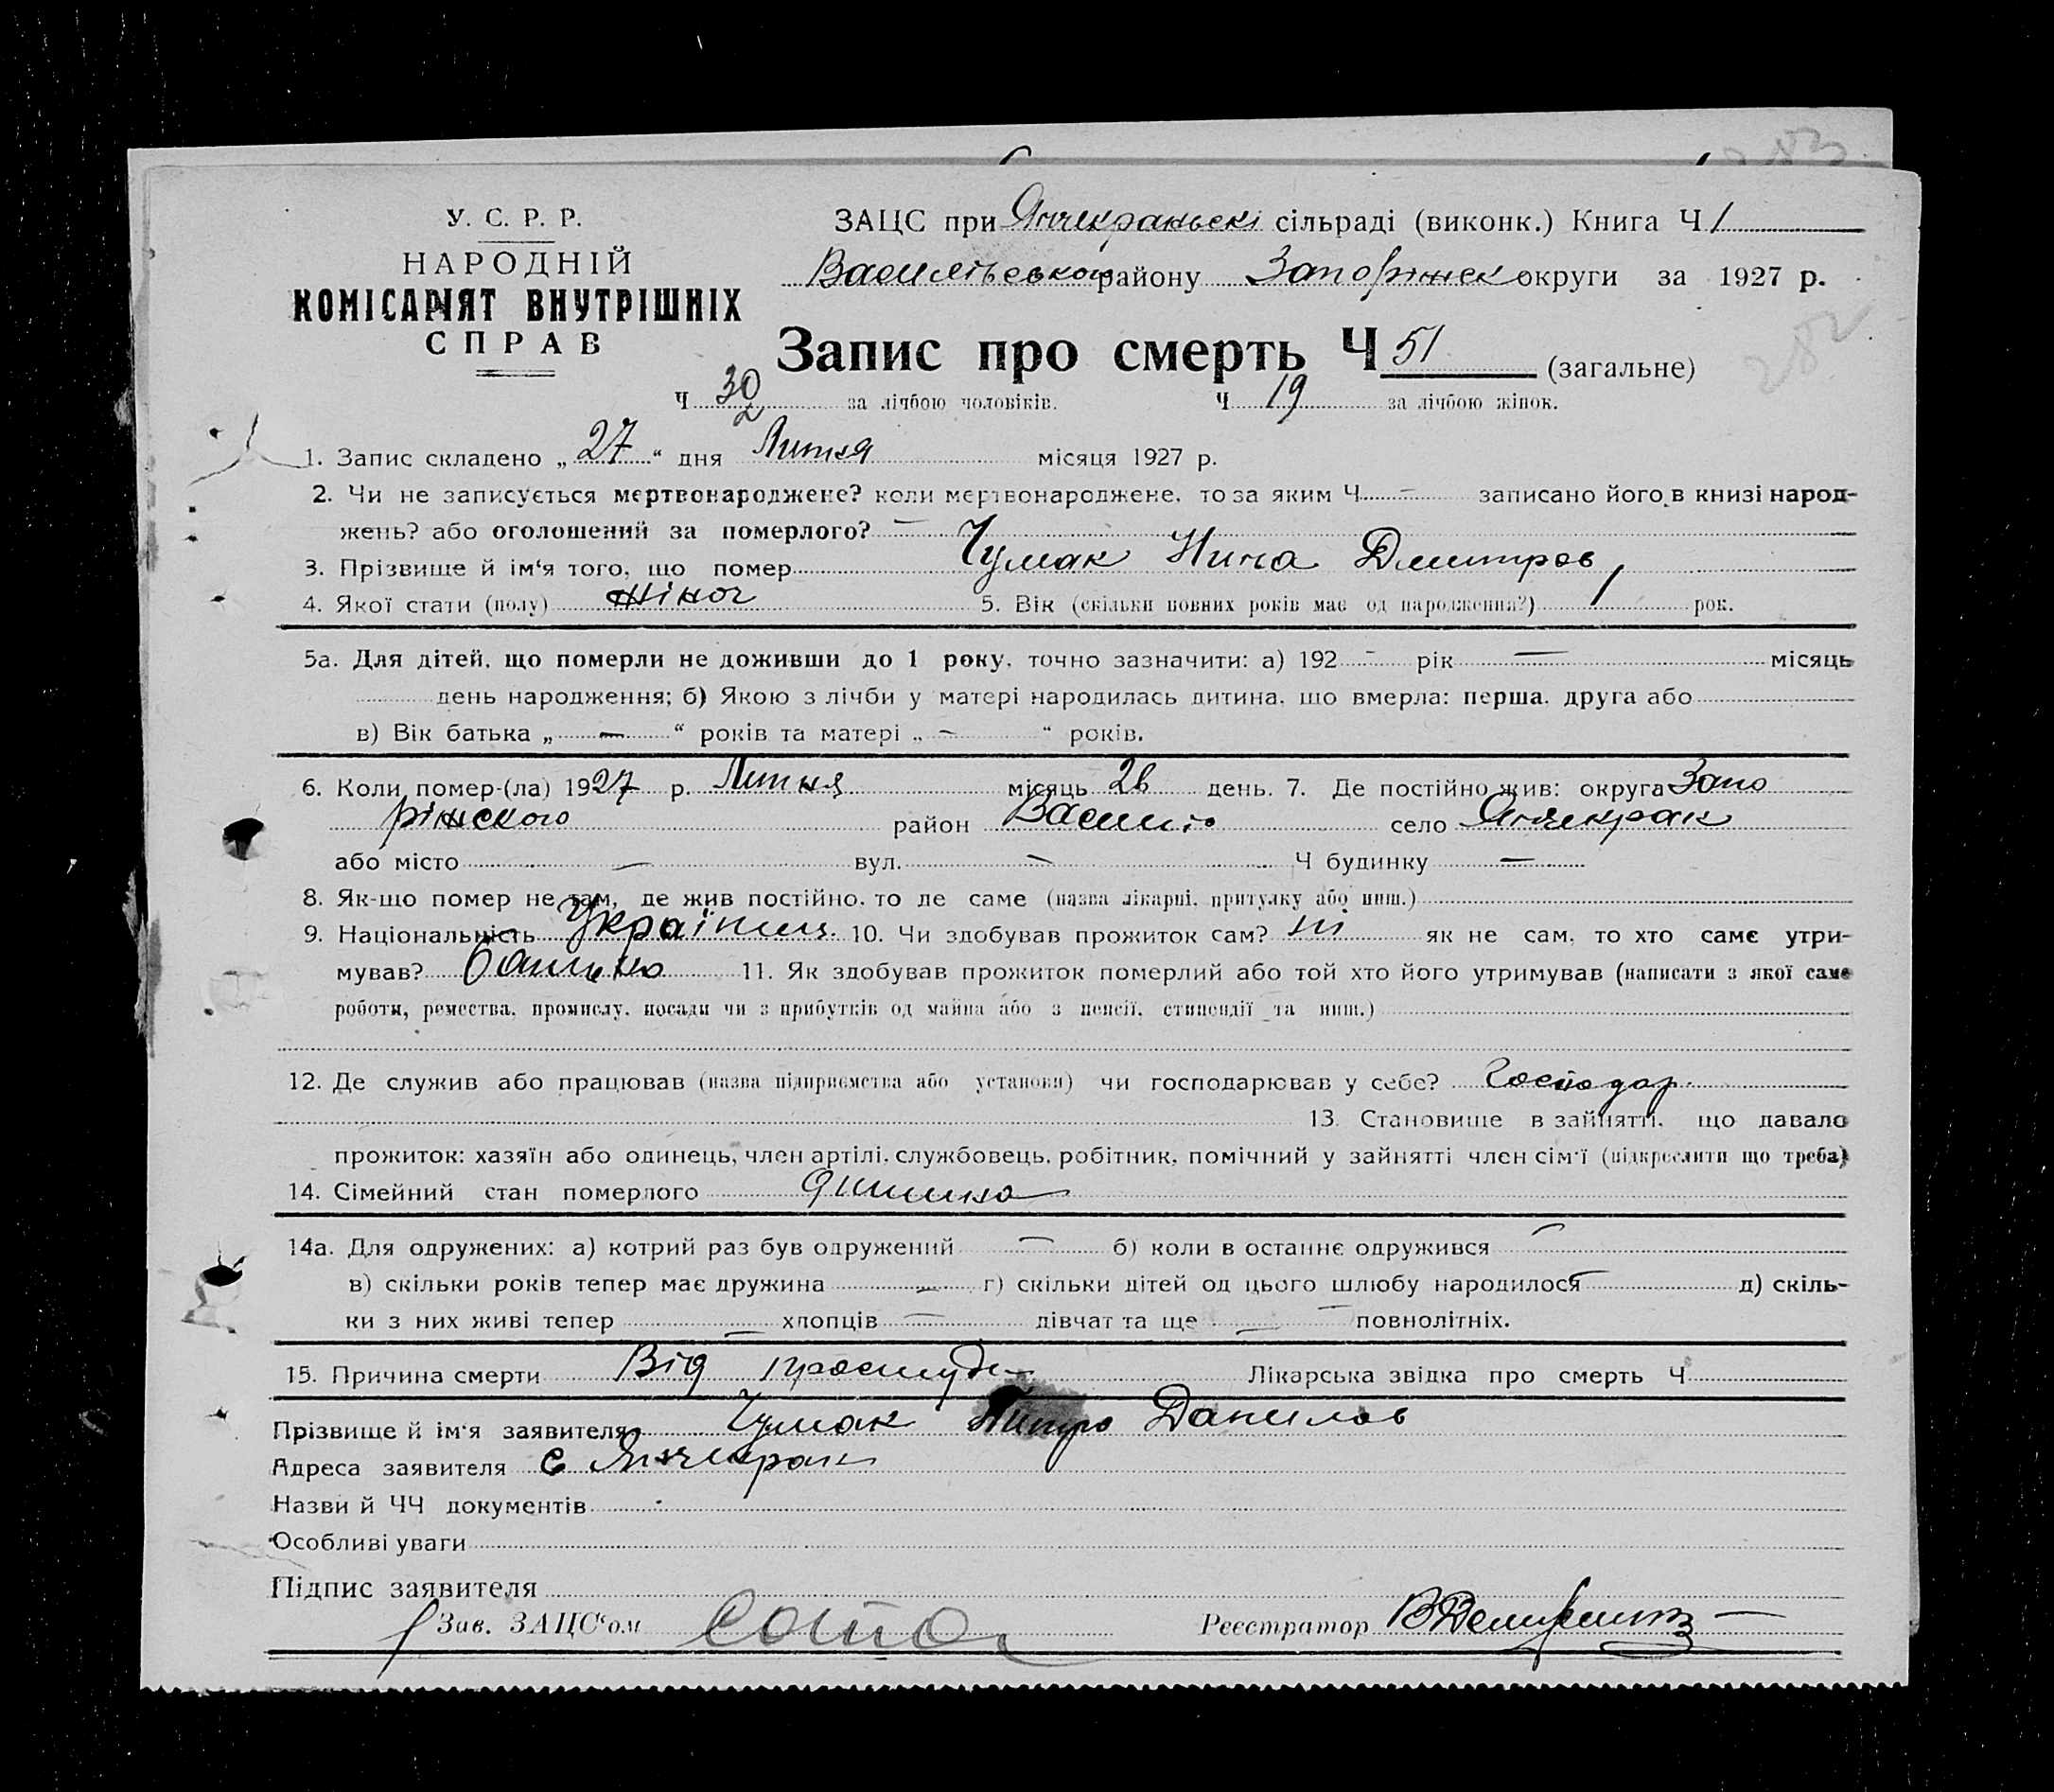 У. С. Р. Р.
НАРОДНІЙ
КОМІСАРІЯТ ВНУТРІШНІХ
СПРАВ
ЗАЦС при Янчекраньскі сільраді (виконк.) Книга Ч 1
Василівського району Запоріжск округи за 1927 р.
Запис про смерть Ч 51 (загальне)
282
Ч 32 за лічбою чоловіків. Ч 19 за лічбою жінок.
1. Запис складено „ 27 “ дня Липня місяця 1927 р.
2. Чи не записується мертвонароджене? коли мертвонароджене, то за яким Ч – записано його в книзі народ-
жень? або оголошений за померлого? –
3. Прізвище й ім‘я того, що помер Чумак Нина Дмитров
4. Якої стати (полу) жіноч 5. Вік (скільки повних років має од народження?) 1 рок.
5а. Для дітей, що померли не доживши до 1 року, точно зазначити: а) 192 – рік — місяць
день народження; б) Якою з лічби у матері народилась дитина, що вмерла: перша, друга або
в) Вік батька „ — “ років та матері „ – “ років.
6. Коли помер-(ла) 1927 р. Липня місяць 26 день. 7. Де постійно жив: округа Запо
ріжского район Василів село Янчекрак
або місто — вул. — Ч будинку —
8. Як-що помер не там, де жив постійно, то де саме (назва лікарні, притулку або инш.)
9. Національність Українц. 10. Чи здобував прожиток сам? ні як не сам, то хто саме утри-
мував? батько 11. Як здобував прожиток померлий або той хто його утримував (написати з якої саме
роботи, ремества, промислу, посади чи з прибутків од майна або з пенсії, стипендії та инш.)
12. Де служив або працював (назва підприємства або установи) чи господарював у себе? Господар.
13. Становище в зайнятті, що давало
прожиток: хазяїн або одинець, член артілі, службовець, робітник, помічний у зайнятті член сім‘ї (підкреслити що треба)
14. Сімейний стан померлого дитина
14а. Для одружених: а) котрий раз був одружений — б) коли в останнє одружився —
в) скільки років тепер має дружина — г) скільки дітей од цього шлюбу народилося – д) скіль-
ки з них живі тепер — хлопців — дівчат та ще — повнолітніх.
15. Причина смерти Від простуди Лікарська звідка про смерть Ч
Прізвище й ім‘я заявителя Чумак Данилов
Адреса заявителя с Янчекрак
Назви й ЧЧ документів
Особливі уваги
Підпис заявителя
Зав. ЗАЦС‘ом
Реєстратор